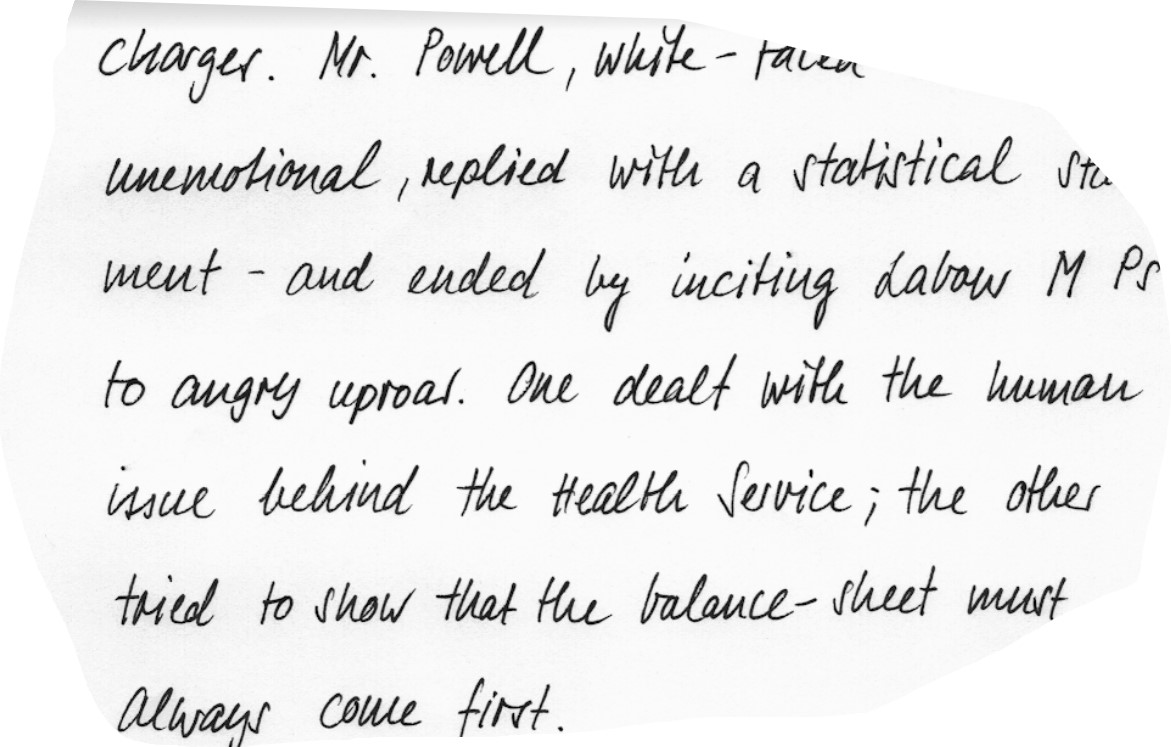 charger. Mr. Powell, white-faced
unemotional, replied with a statistical
ment - and ended by inciting Labour MPs
to angry uproar. One dealt with the human
issue behind the Health Service; the other
tried to show that the balance-sheet must
always come first.